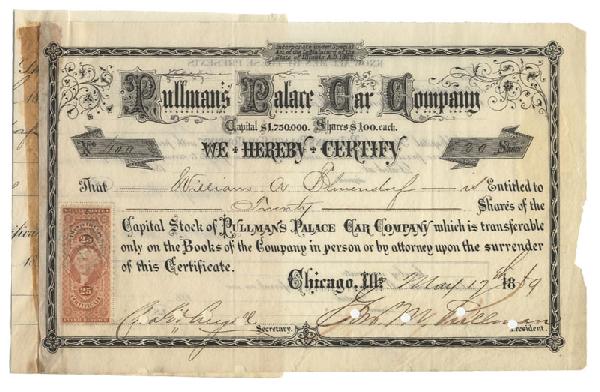 Incorporated under Special
Act of the Legislature of the
State of Illinois A.D.
Pullman's Palace Car Company
Capital $1,750,000. Shares $100. each.
WE HEREBY CERTIFY
No. 100
20 Shares
That William A. is Entitled to
Twenty Shares of the
Capital Stock of PULLMAN'S PALACE CAR COMPANY which is transferable
only on the Books of the Company in person or by attorney upon the surrender
of this Certificate.
Chicago, Ill. May 17th 1869
Secretary.
Geo. M. Pullman
President.
25
25